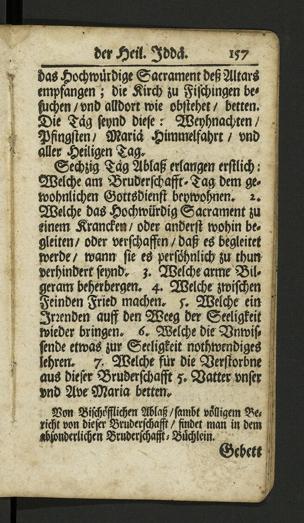 der Heil. Iddä. 157
das Hochwürdige Sacrament deß Altars
empfangen; die Kirch zu Fischingen be-
suchen/vnd alldort wie obstehet/ betten.
Die Täg seynd diese: Weyhnachten/
Pfingsten/ Mariä Himmelfahrt/ vnd
aller Heiligen Tag.
Sechzig Täg Ablaß erlangen erstlich:
Welche am Bruderschafft-Tag dem ge-
wohnlichen Gottsdienst beywohnen. 2.
Welche das Hochwürdig Sacrament zu
einem Krancken/ oder anderst wohin be-
gleiten/ oder verschaffen/ daß es begleitet
werde/ wann sie es persöhnlich zu thun
verhindert seynd. 3. Welche arme Bil-
geram beherbergen. 4. Welche zwischen
Feinden Fried machen. 5. Welche ein
Irrenden auff den Weeg der Seeligkeit
wieder bringen. 6. Welche die Vnwis-
sende etwas zur Seeligkeit nothwendiges
lehren. 7. Welche für die Verstorbne
aus dieser Bruderschafft 5. Vatter vnser
vnd Ave Maria betten.
Von Bischöfflichen Ablaß/sambt völligem Be-
richt von dieser Bruderschafft/ findet man in dem
absonderlichen Bruderschafft-Büchlein.
Gebett